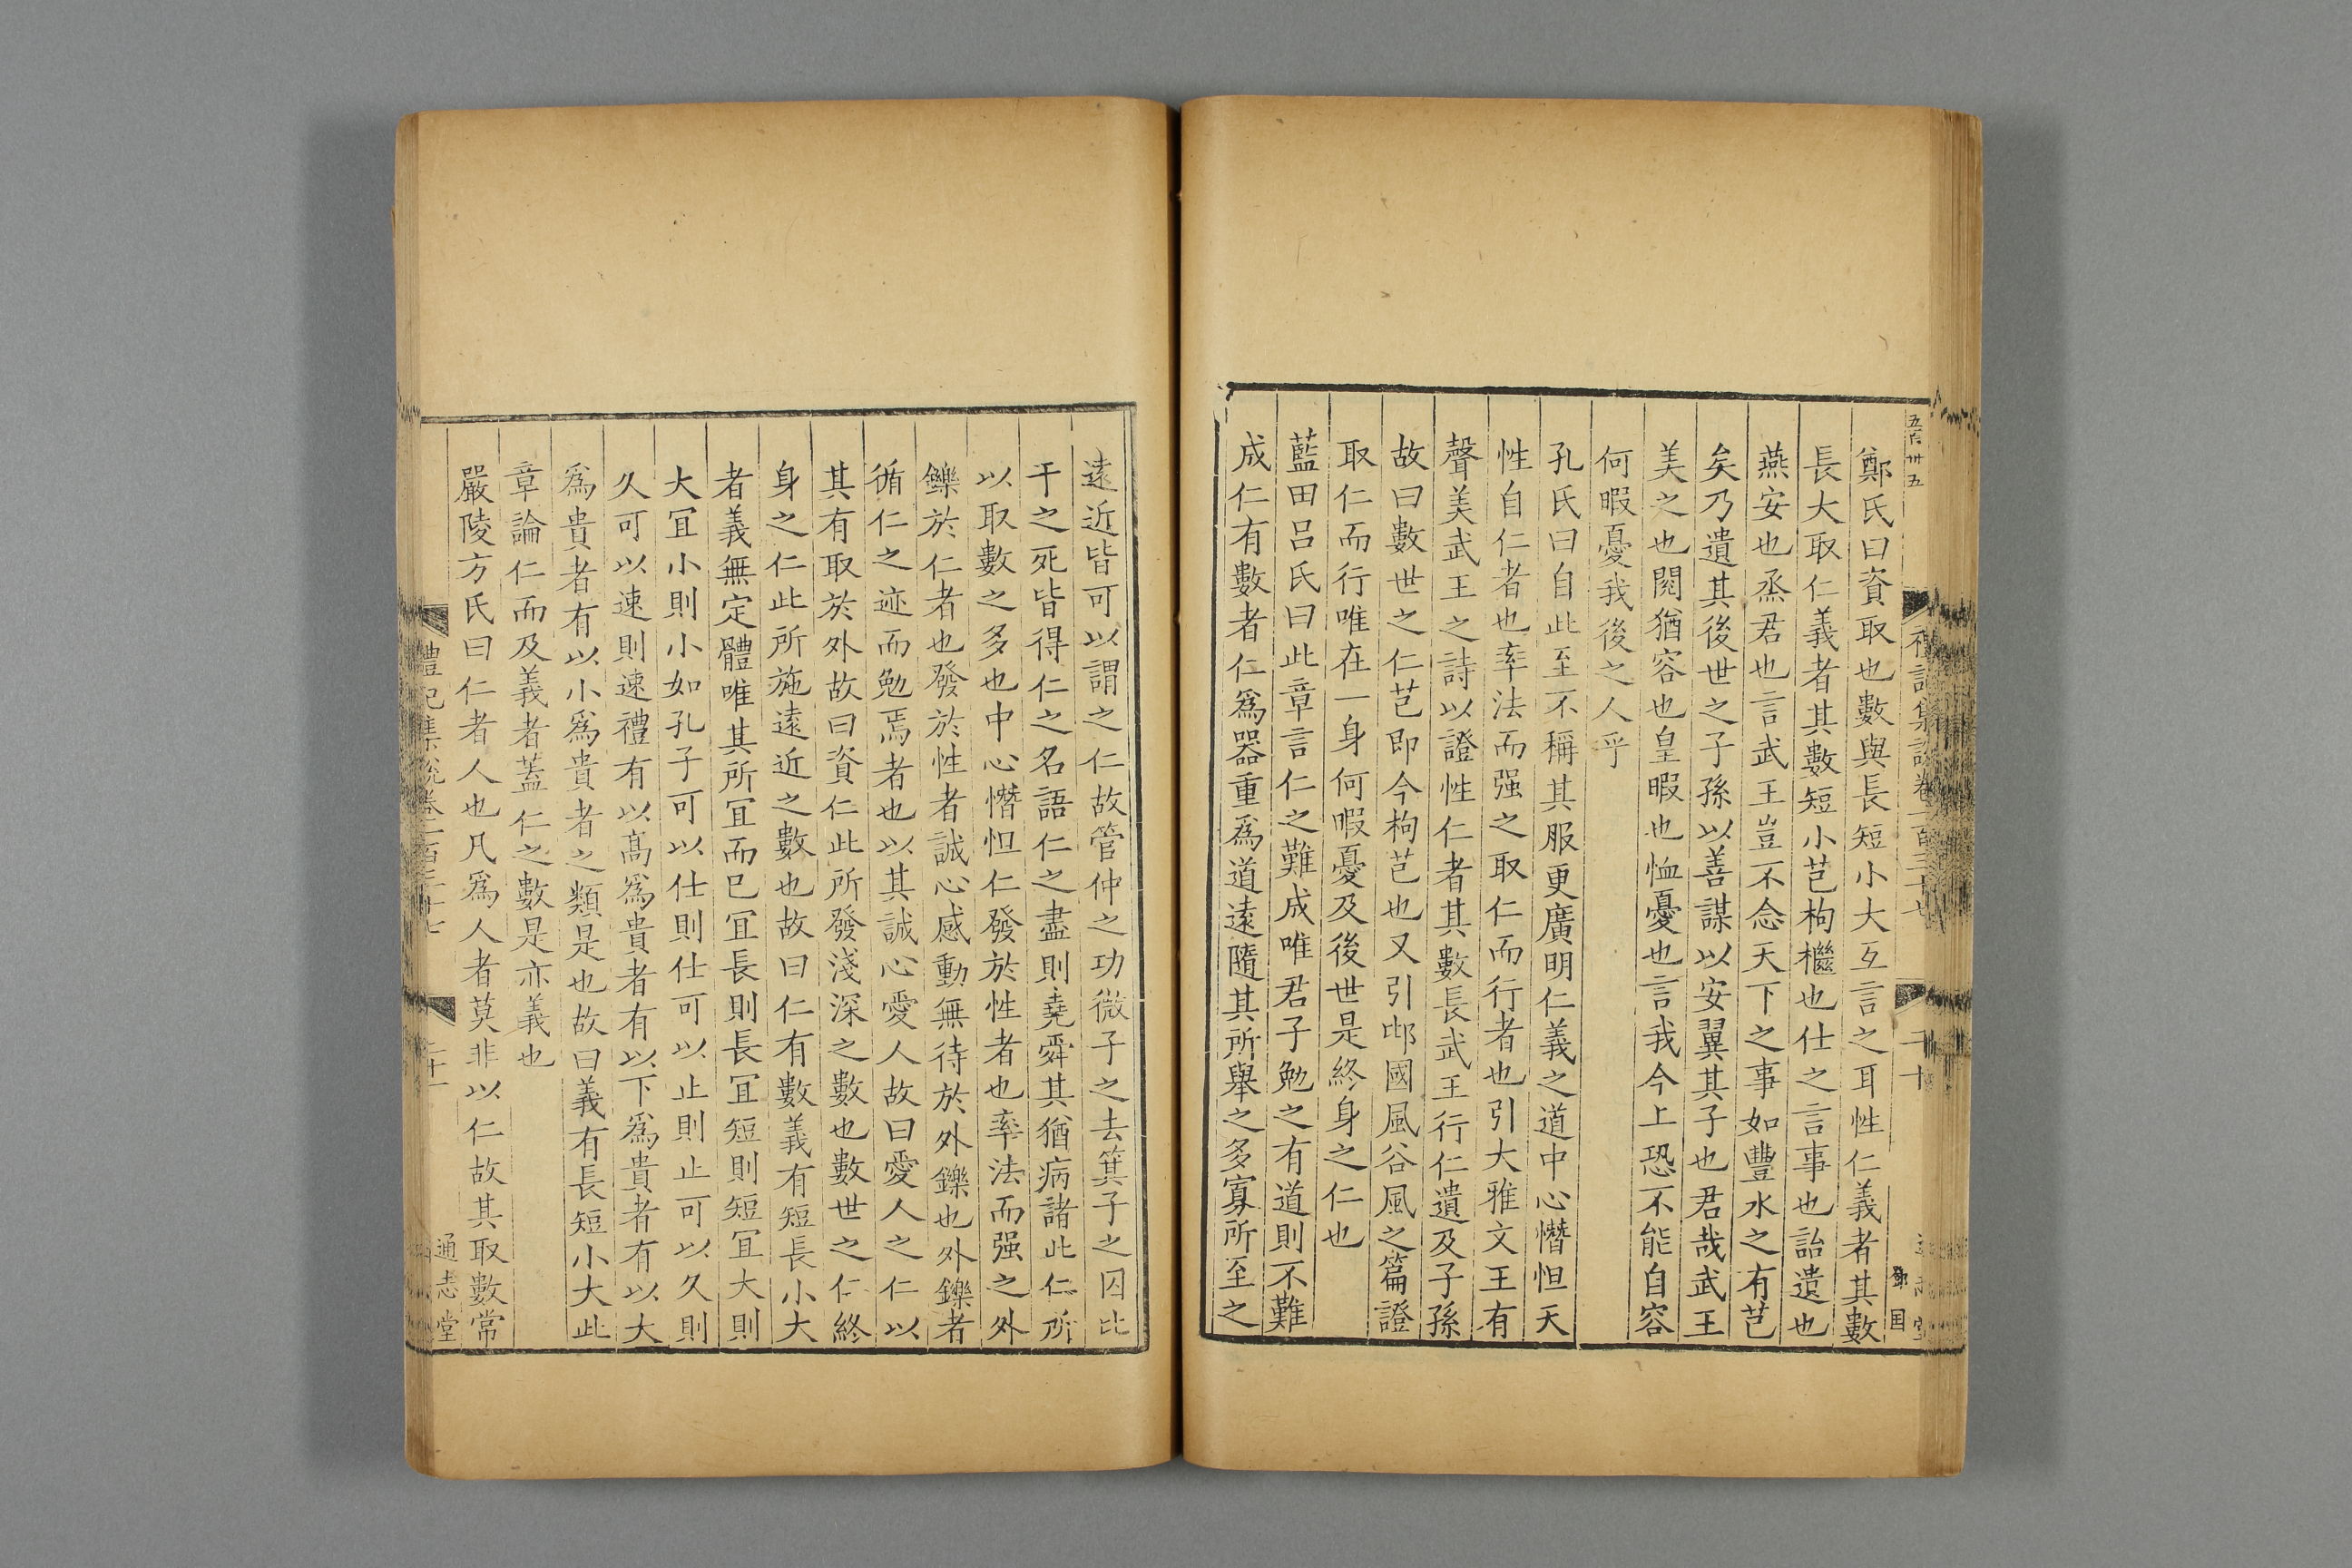 五百卅五
鄭氏曰資取也數與長短小大互言之耳性仁義者其數
長大取仁義者其數短小芑枸檵也仕之言事也詒遺也
燕安也烝君也言武王豈不念天下之事如豐水之有芑
矣乃遺其後世之子孫以善謀以安翼其子也君哉武王
美之也閱猶容也皇暇也恤憂也言我今上恐不能自容
何暇憂我後之人乎
孔氏曰自此至不稱其服更廣明仁義之道中心憯怛天
性自仁者也率法而强之取仁而行者也引大雅文王有
聲美武王之詩以證性仁者其數長武王行仁遺及子孫
故曰數世之仁芑即今枸芑也又引邶國風谷風之篇證
取仁而行唯在一身何暇憂及後世是終身之仁也
藍田呂氏曰此章言仁之難成唯君子勉之有道則不難
成仁有數者仁爲器重爲道遠隨其所舉之多寡所至之
遠近皆可以謂之仁故管仲之功微子之去箕子之囚比
干之死皆得仁之名語仁之盡則堯舜其猶病諸此仁所
以取數之多也中心憯怛仁發於性者也率法而强之外
鑠於仁者也發於性者誠心感動無待於外鑠也外鑠者
循仁之迹而勉焉者也以其誠心愛人故曰愛人之仁以
其有取於外故曰資仁此所發淺深之數也數世之仁終
身之仁此所施遠近之數也故曰仁有數義有短長小大
者義無定體唯其所冝而已冝長則長冝短則短冝大則
大冝小則小如孔子可以仕則仕可以止則止可以久則
久可以速則速禮有以髙爲貴者有以下爲貴者有以大
爲貴者有以小爲貴者之類是也故曰義有長短小大此
章論仁而及義者蓋仁之數是亦義也
嚴陵方氏曰仁者人也凡爲人者莫非以仁故其取數常
禮記集說卷一百三十七
二十一
通志堂